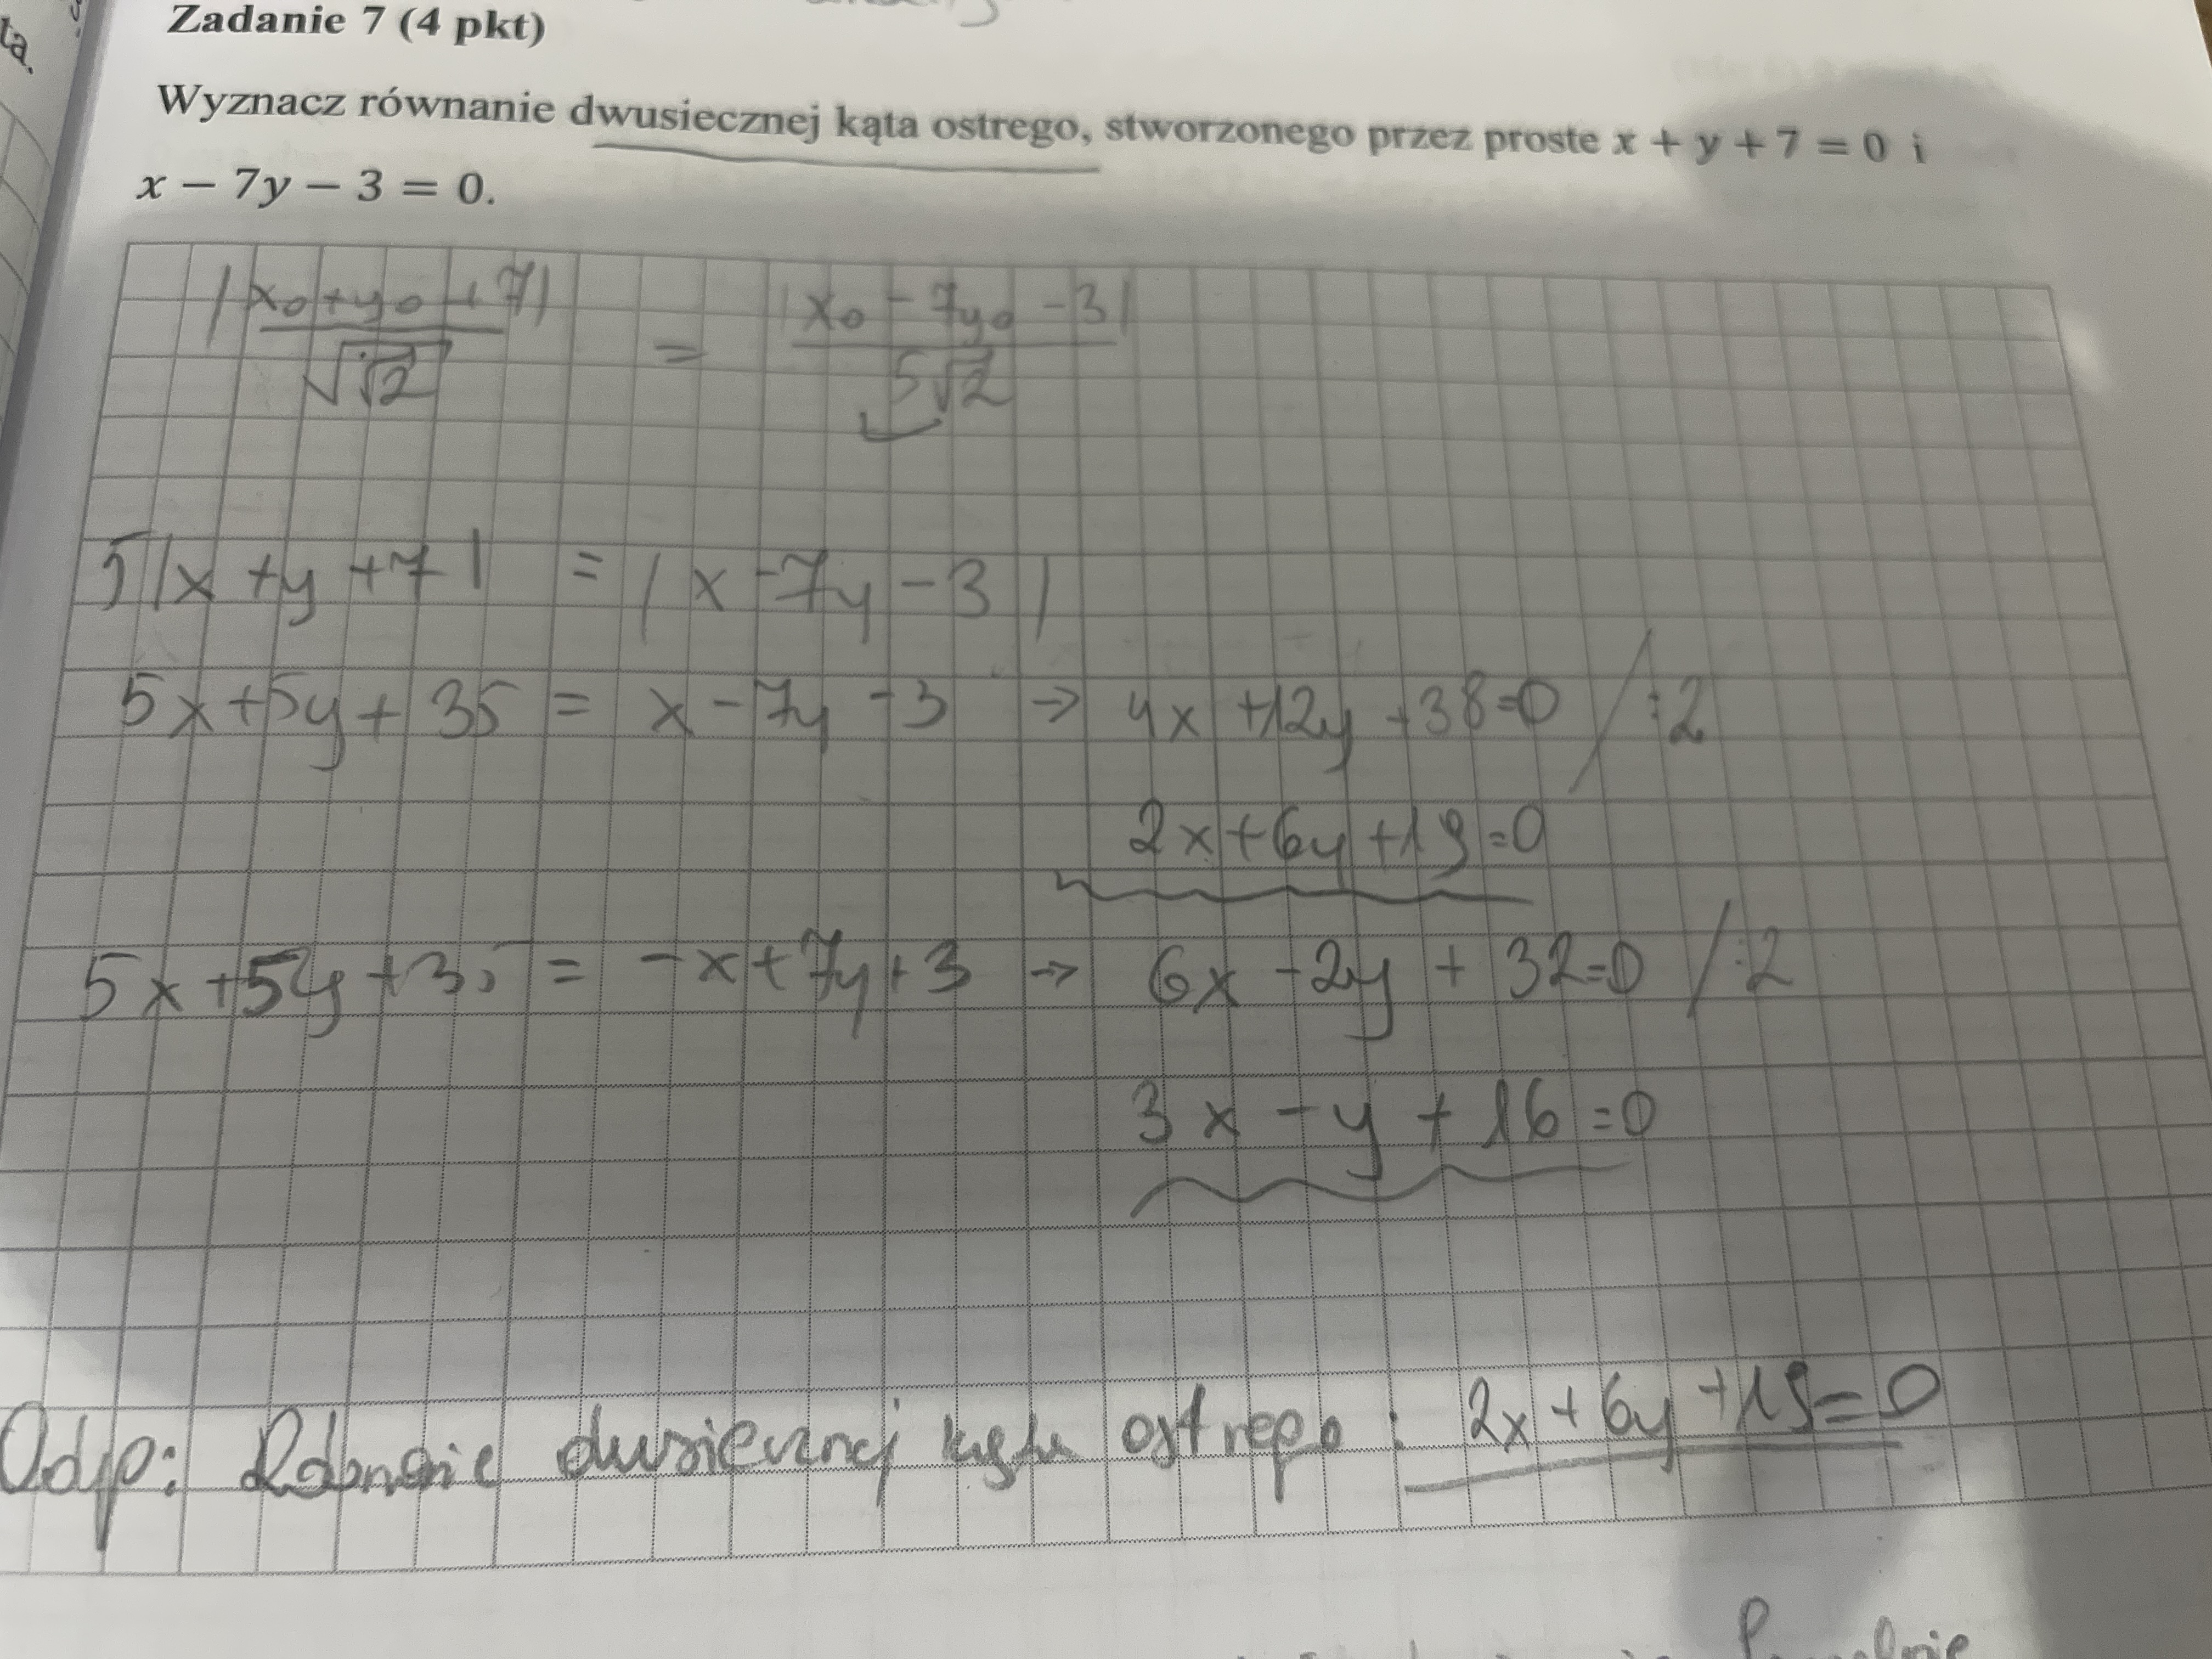 ta.
Zadanie 7 (4 pkt)
Wyznacz równanie dwusiecznej kąta ostrego, stworzonego przez proste x + y + 7 = 0 i
x − 7y − 3 = 0.
|x₀+y₀+7| / √√2 = |x₀−7y₀−3| / 5√2
5|x+y+7| = |x−7y−3|
5x+5y+35 = x−7y−3 → 4x+12y+38=0 /:2
2x+6y+19=0
5x+5y+35 = −x+7y+3 → 6x−2y+32=0 /:2
3x−y+16=0
Odp: Równanie dwusiecznej kąta ostrego : 2x+6y+19=0